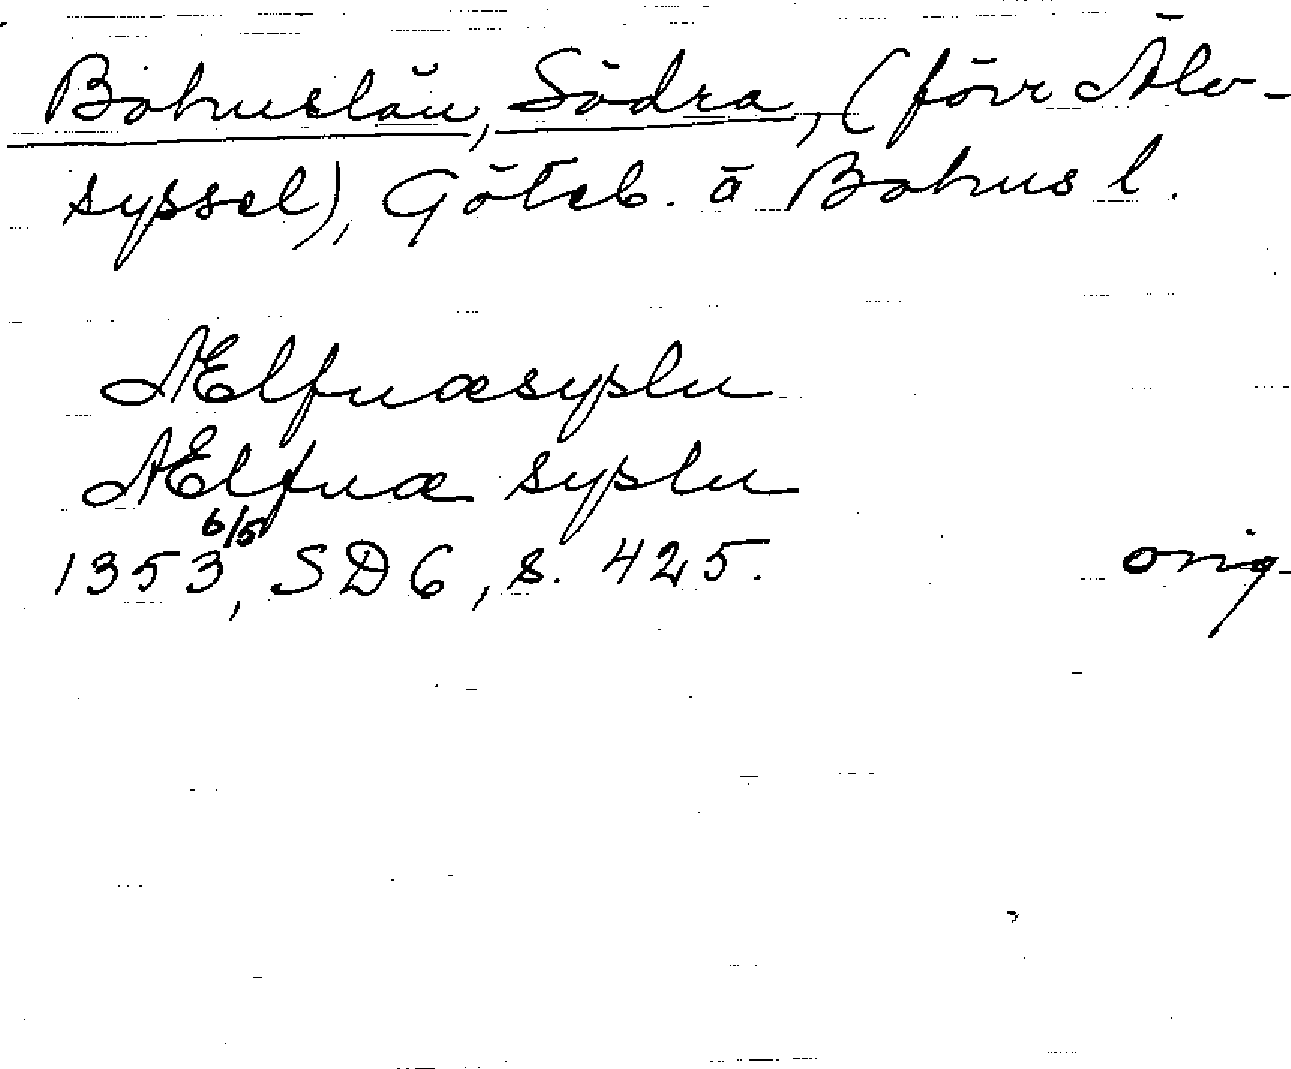 Bohuslän, Södra, (förr Älv-
syssel), Göteb. o Bohus l.
Ælfuæsyslu
Ælfuæ syslu
6/5
1353, SD 6, s. 425. orig.